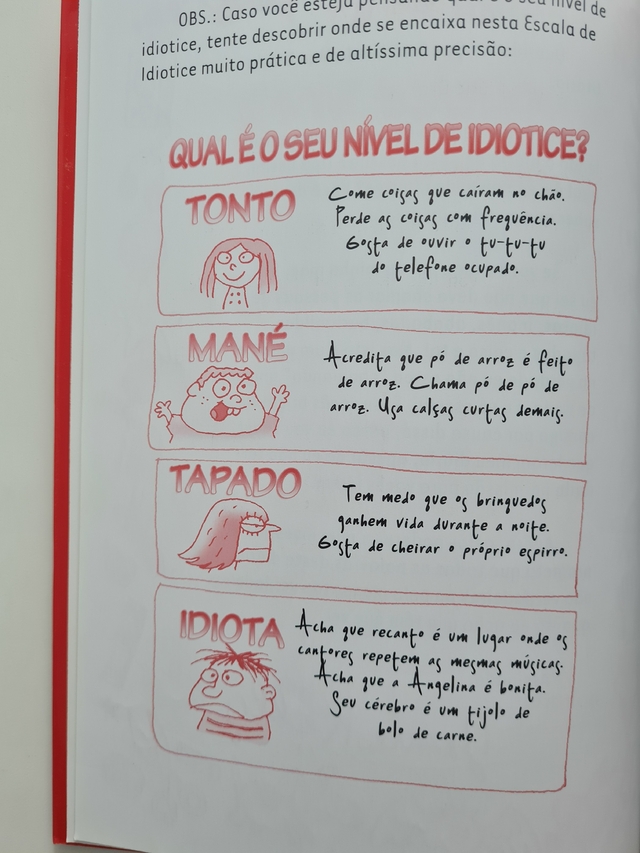 OBS.: Caso você esteja pensando qual é o seu nível de
idiotice, tente descobrir onde se encaixa nesta Escala de
Idiotice muito prática e de altíssima precisão:
QUAL É O SEU NÍVEL DE IDIOTICE?
TONTO
Come coisas que caíram no chão.
Perde as coisas com frequência.
Gosta de ouvir o tu-tu-tu
do telefone ocupado.
MANÉ
Acredita que pó de arroz é feito
de arroz. Chama pó de pó de
arroz. Usa calças curtas demais.
TAPADO
Tem medo que os brinquedos
ganhem vida durante a noite.
Gosta de cheirar o próprio espirro.
IDIOTA
Acha que recanto é um lugar onde os
cantores repetem as mesmas músicas.
Acha que a Angelina é bonita.
Seu cérebro é um tijolo de
bolo de carne.